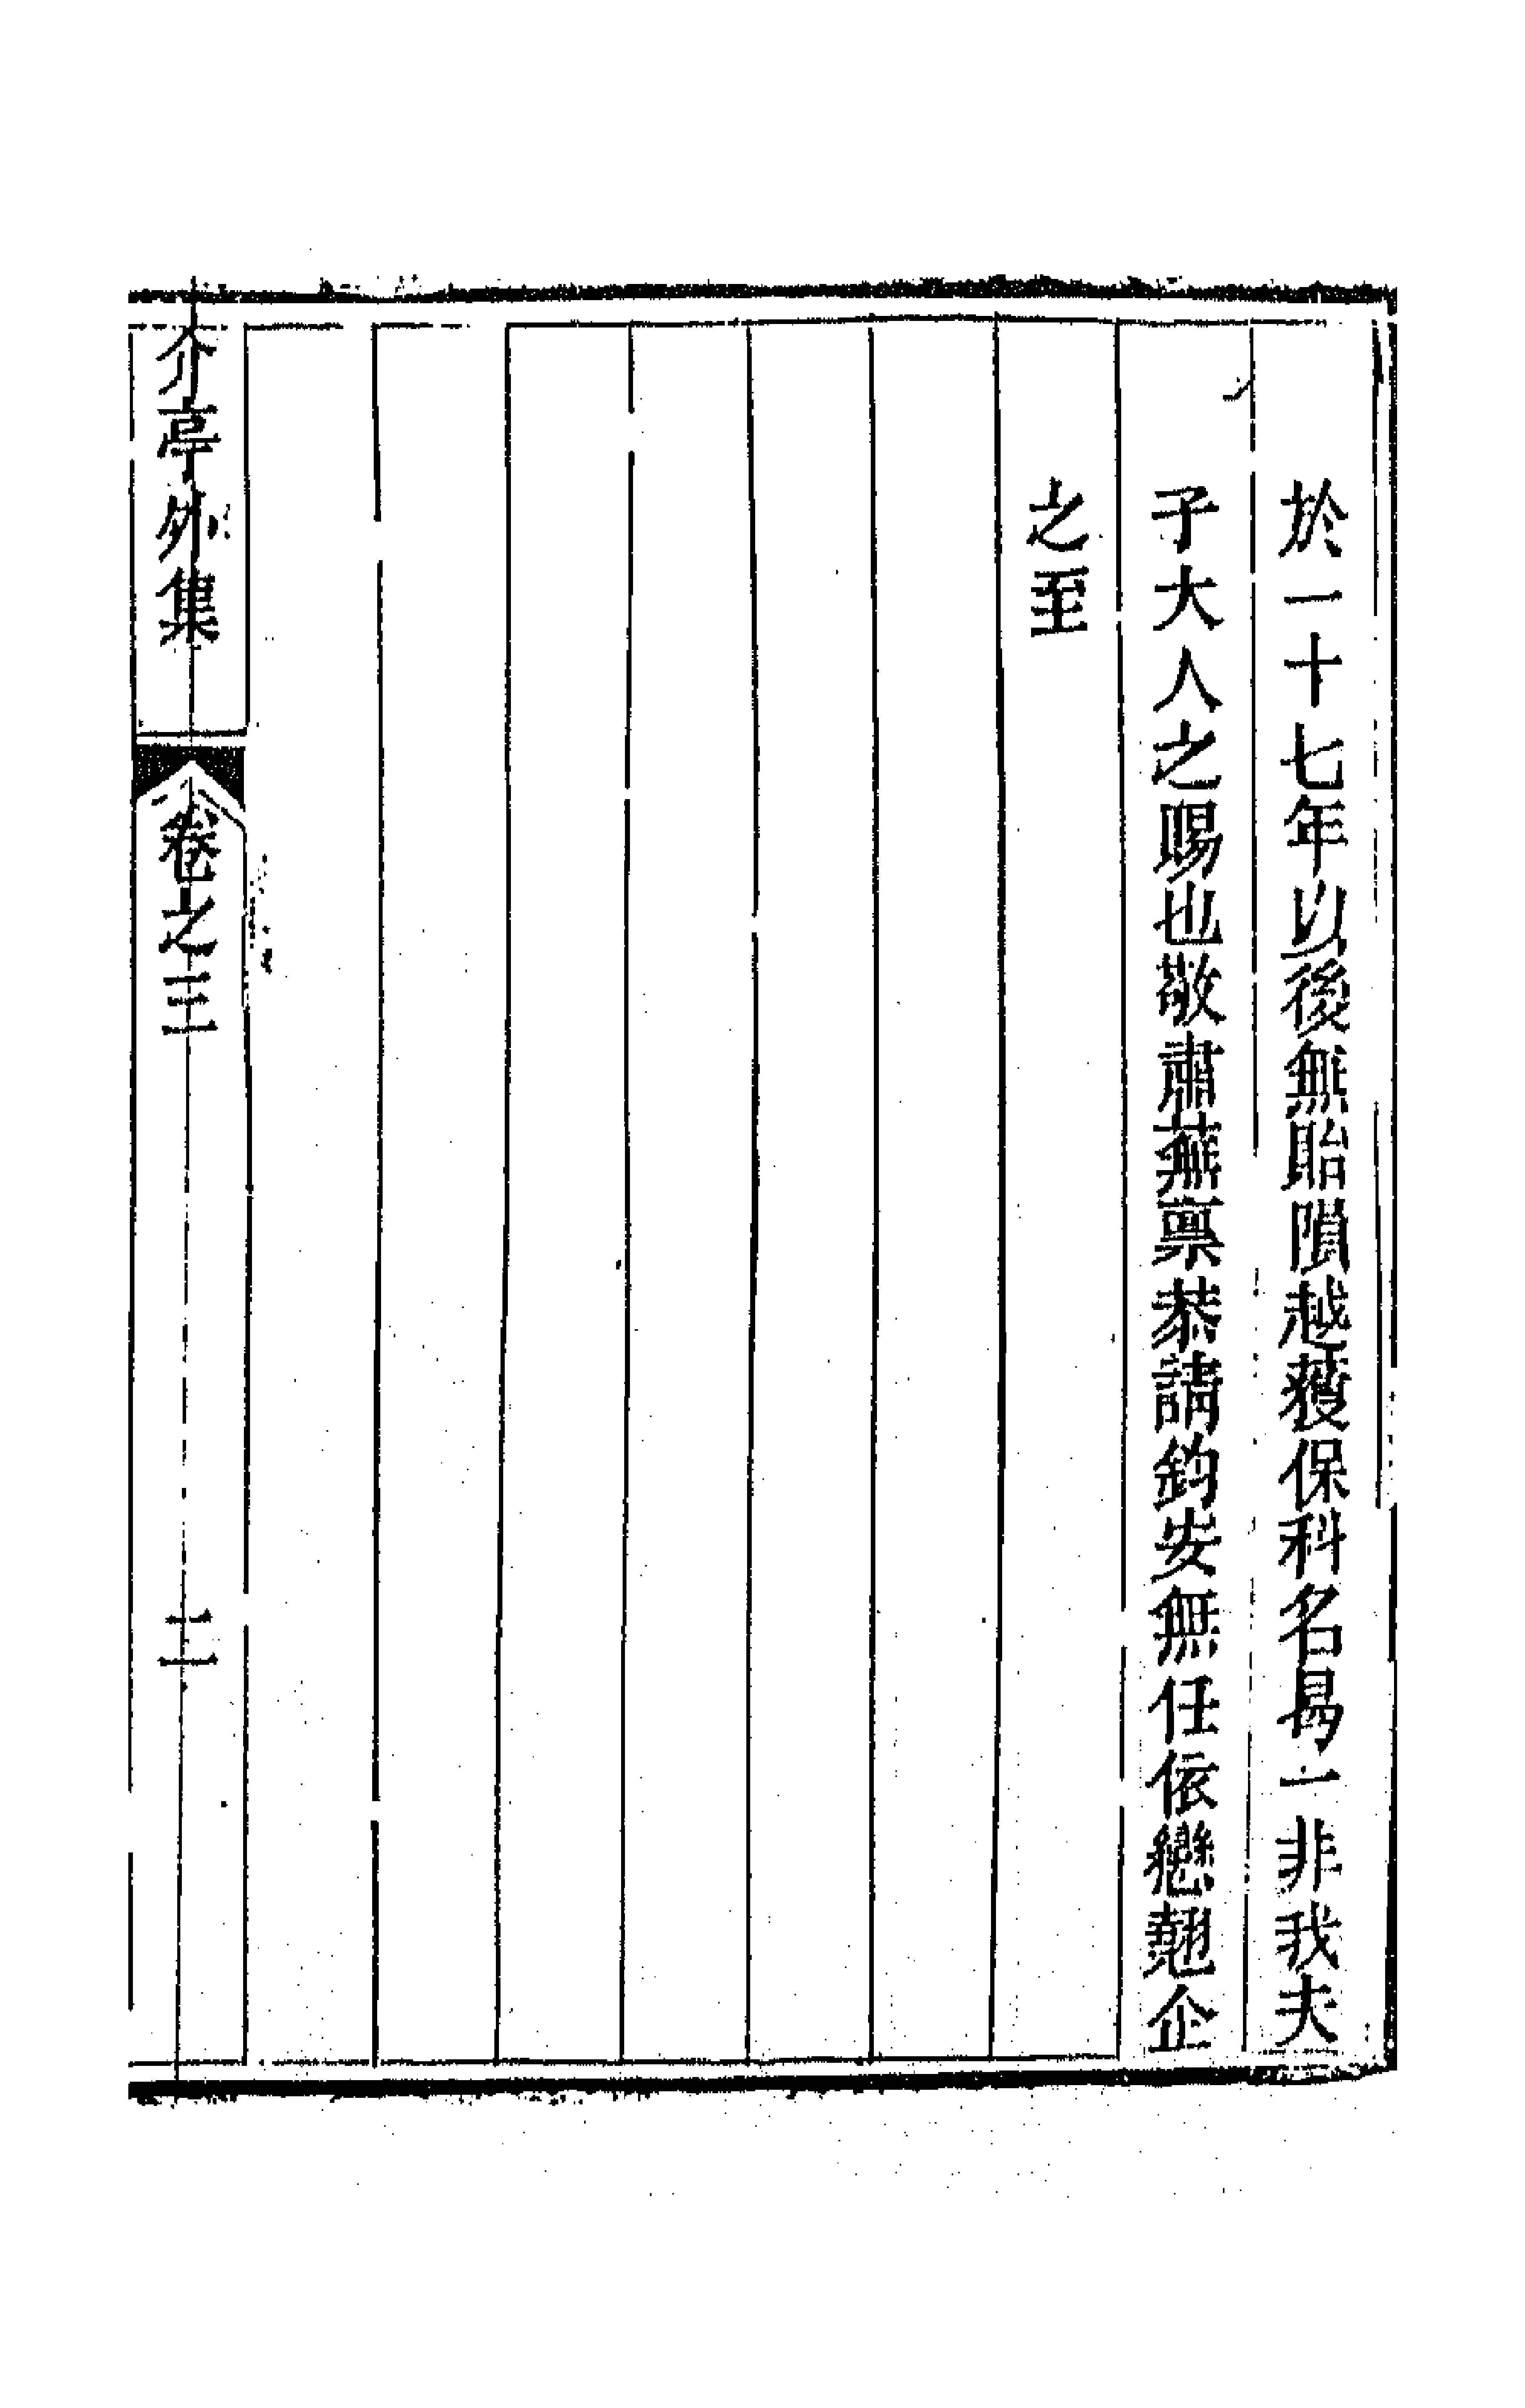 於一十七年以後無貽隕越獲保科名曷一非我夫
子大人之賜也敬肅蕪禀恭請鈞安無任依戀翹企
之至
介亭外集
卷之三
二